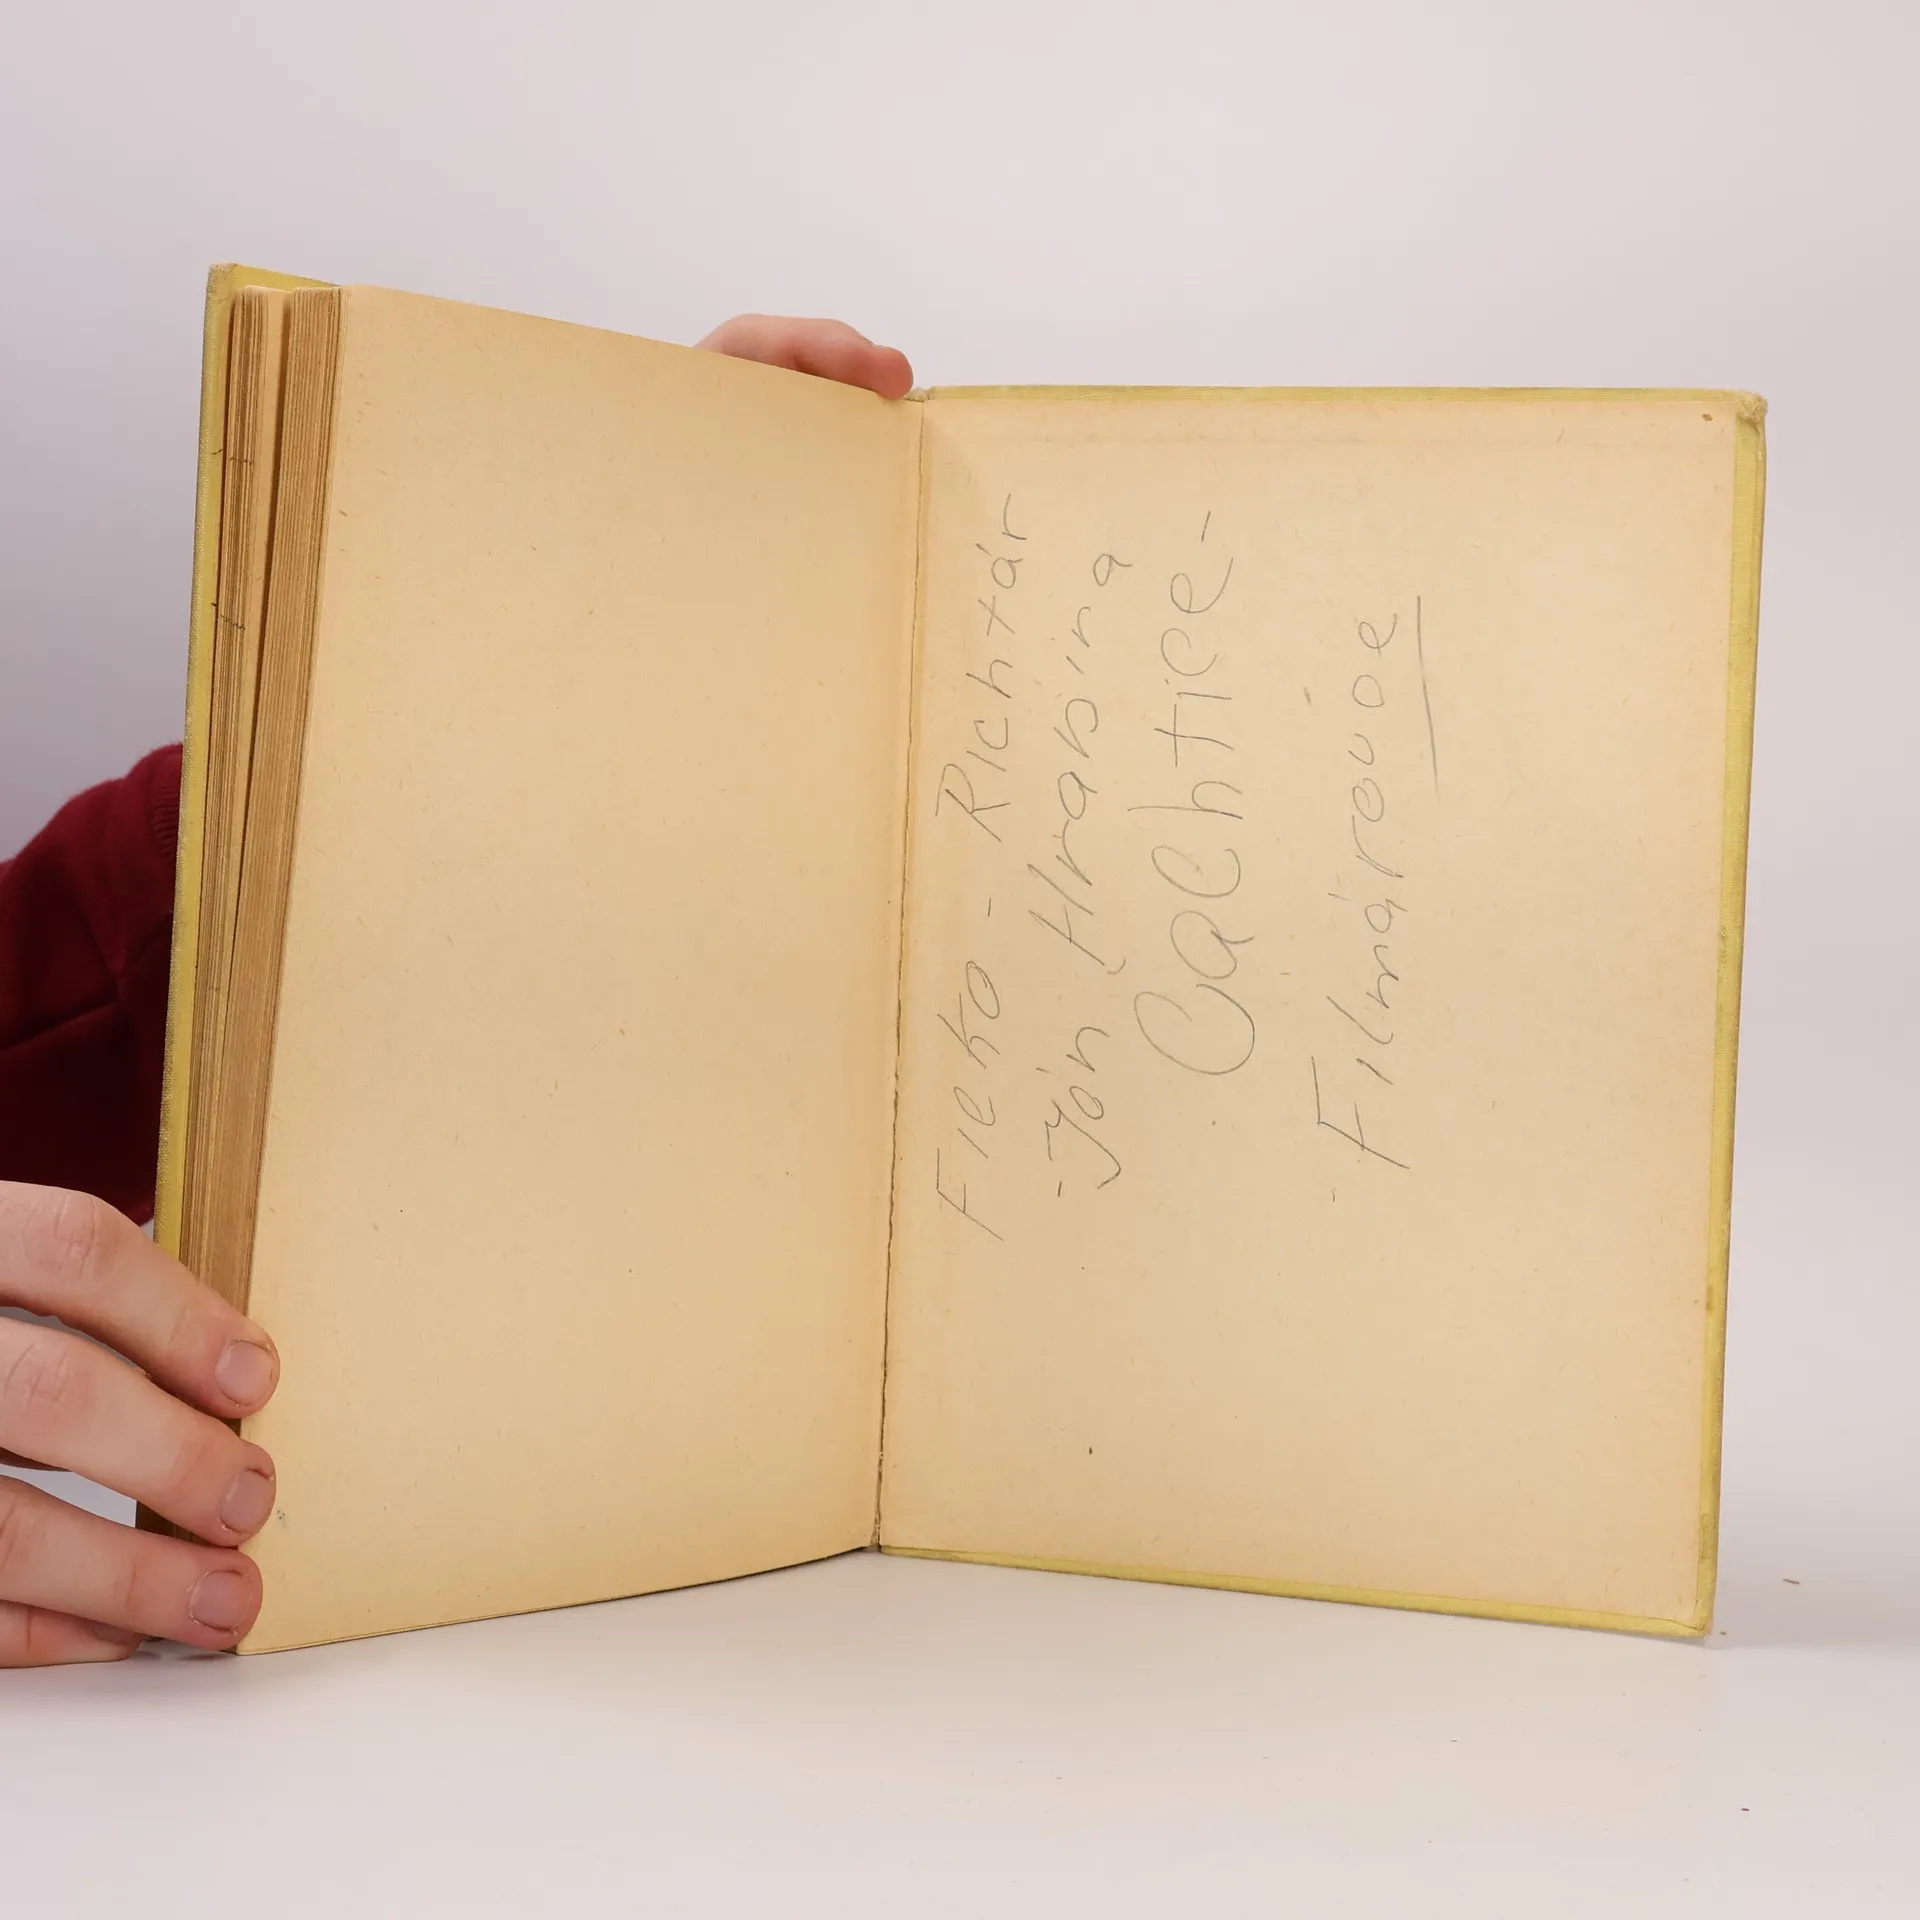 Ficko - Richtár
- Ján Hrabina
Cachtice -
- Filmárovoe